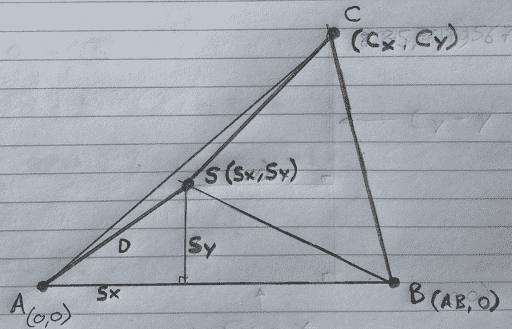 C
(Cx, Cy)
S (Sx, Sy)
D
Sy
Sx
A (0,0)
B (AB, 0)